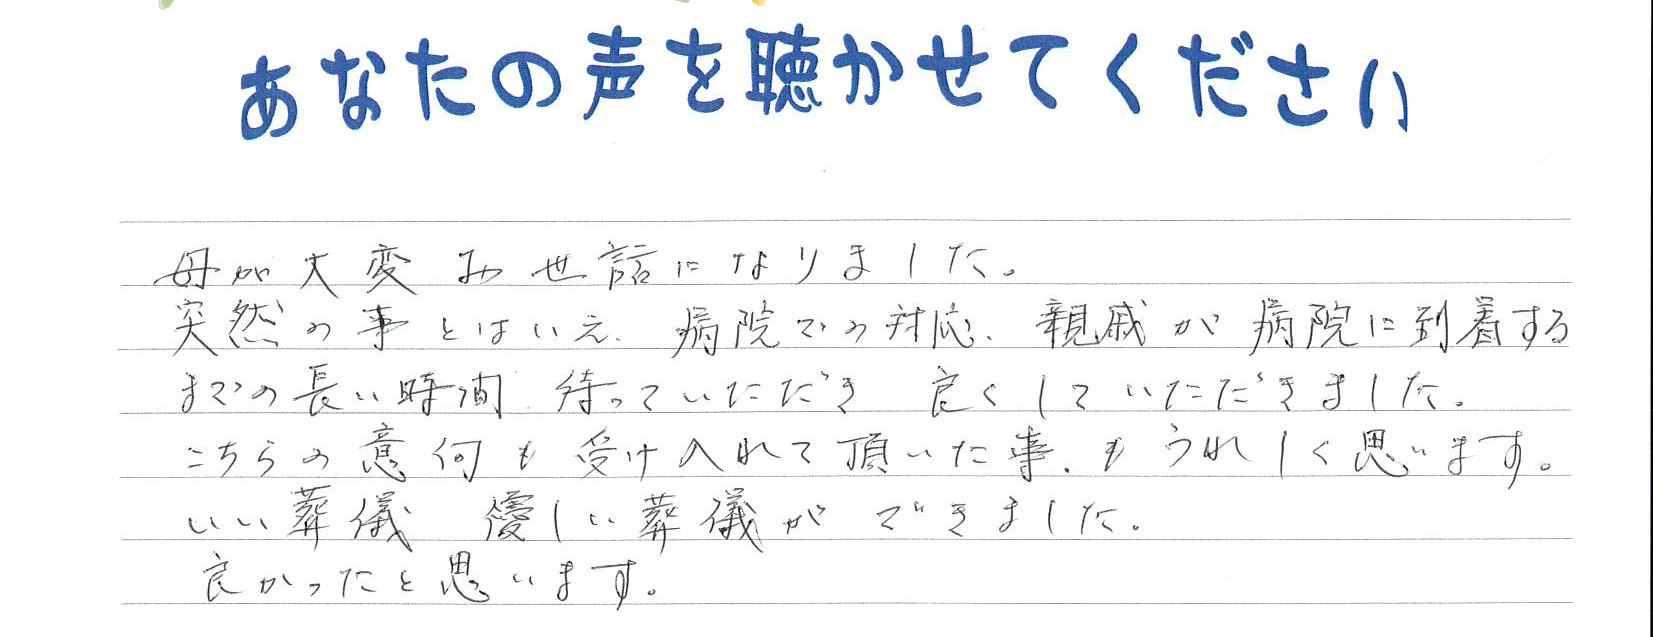 あなたの声を聴かせてください
母が大変お世話になりました。
突然の事とはいえ、病院での対応、親戚が病院に到着する
までの長い時間 待っていただき 良くしていただきました。
こちらの意何も受け入れて頂いた事、もうれしく思います。
いい葬儀 優しい葬儀ができました。
良かったと思います。